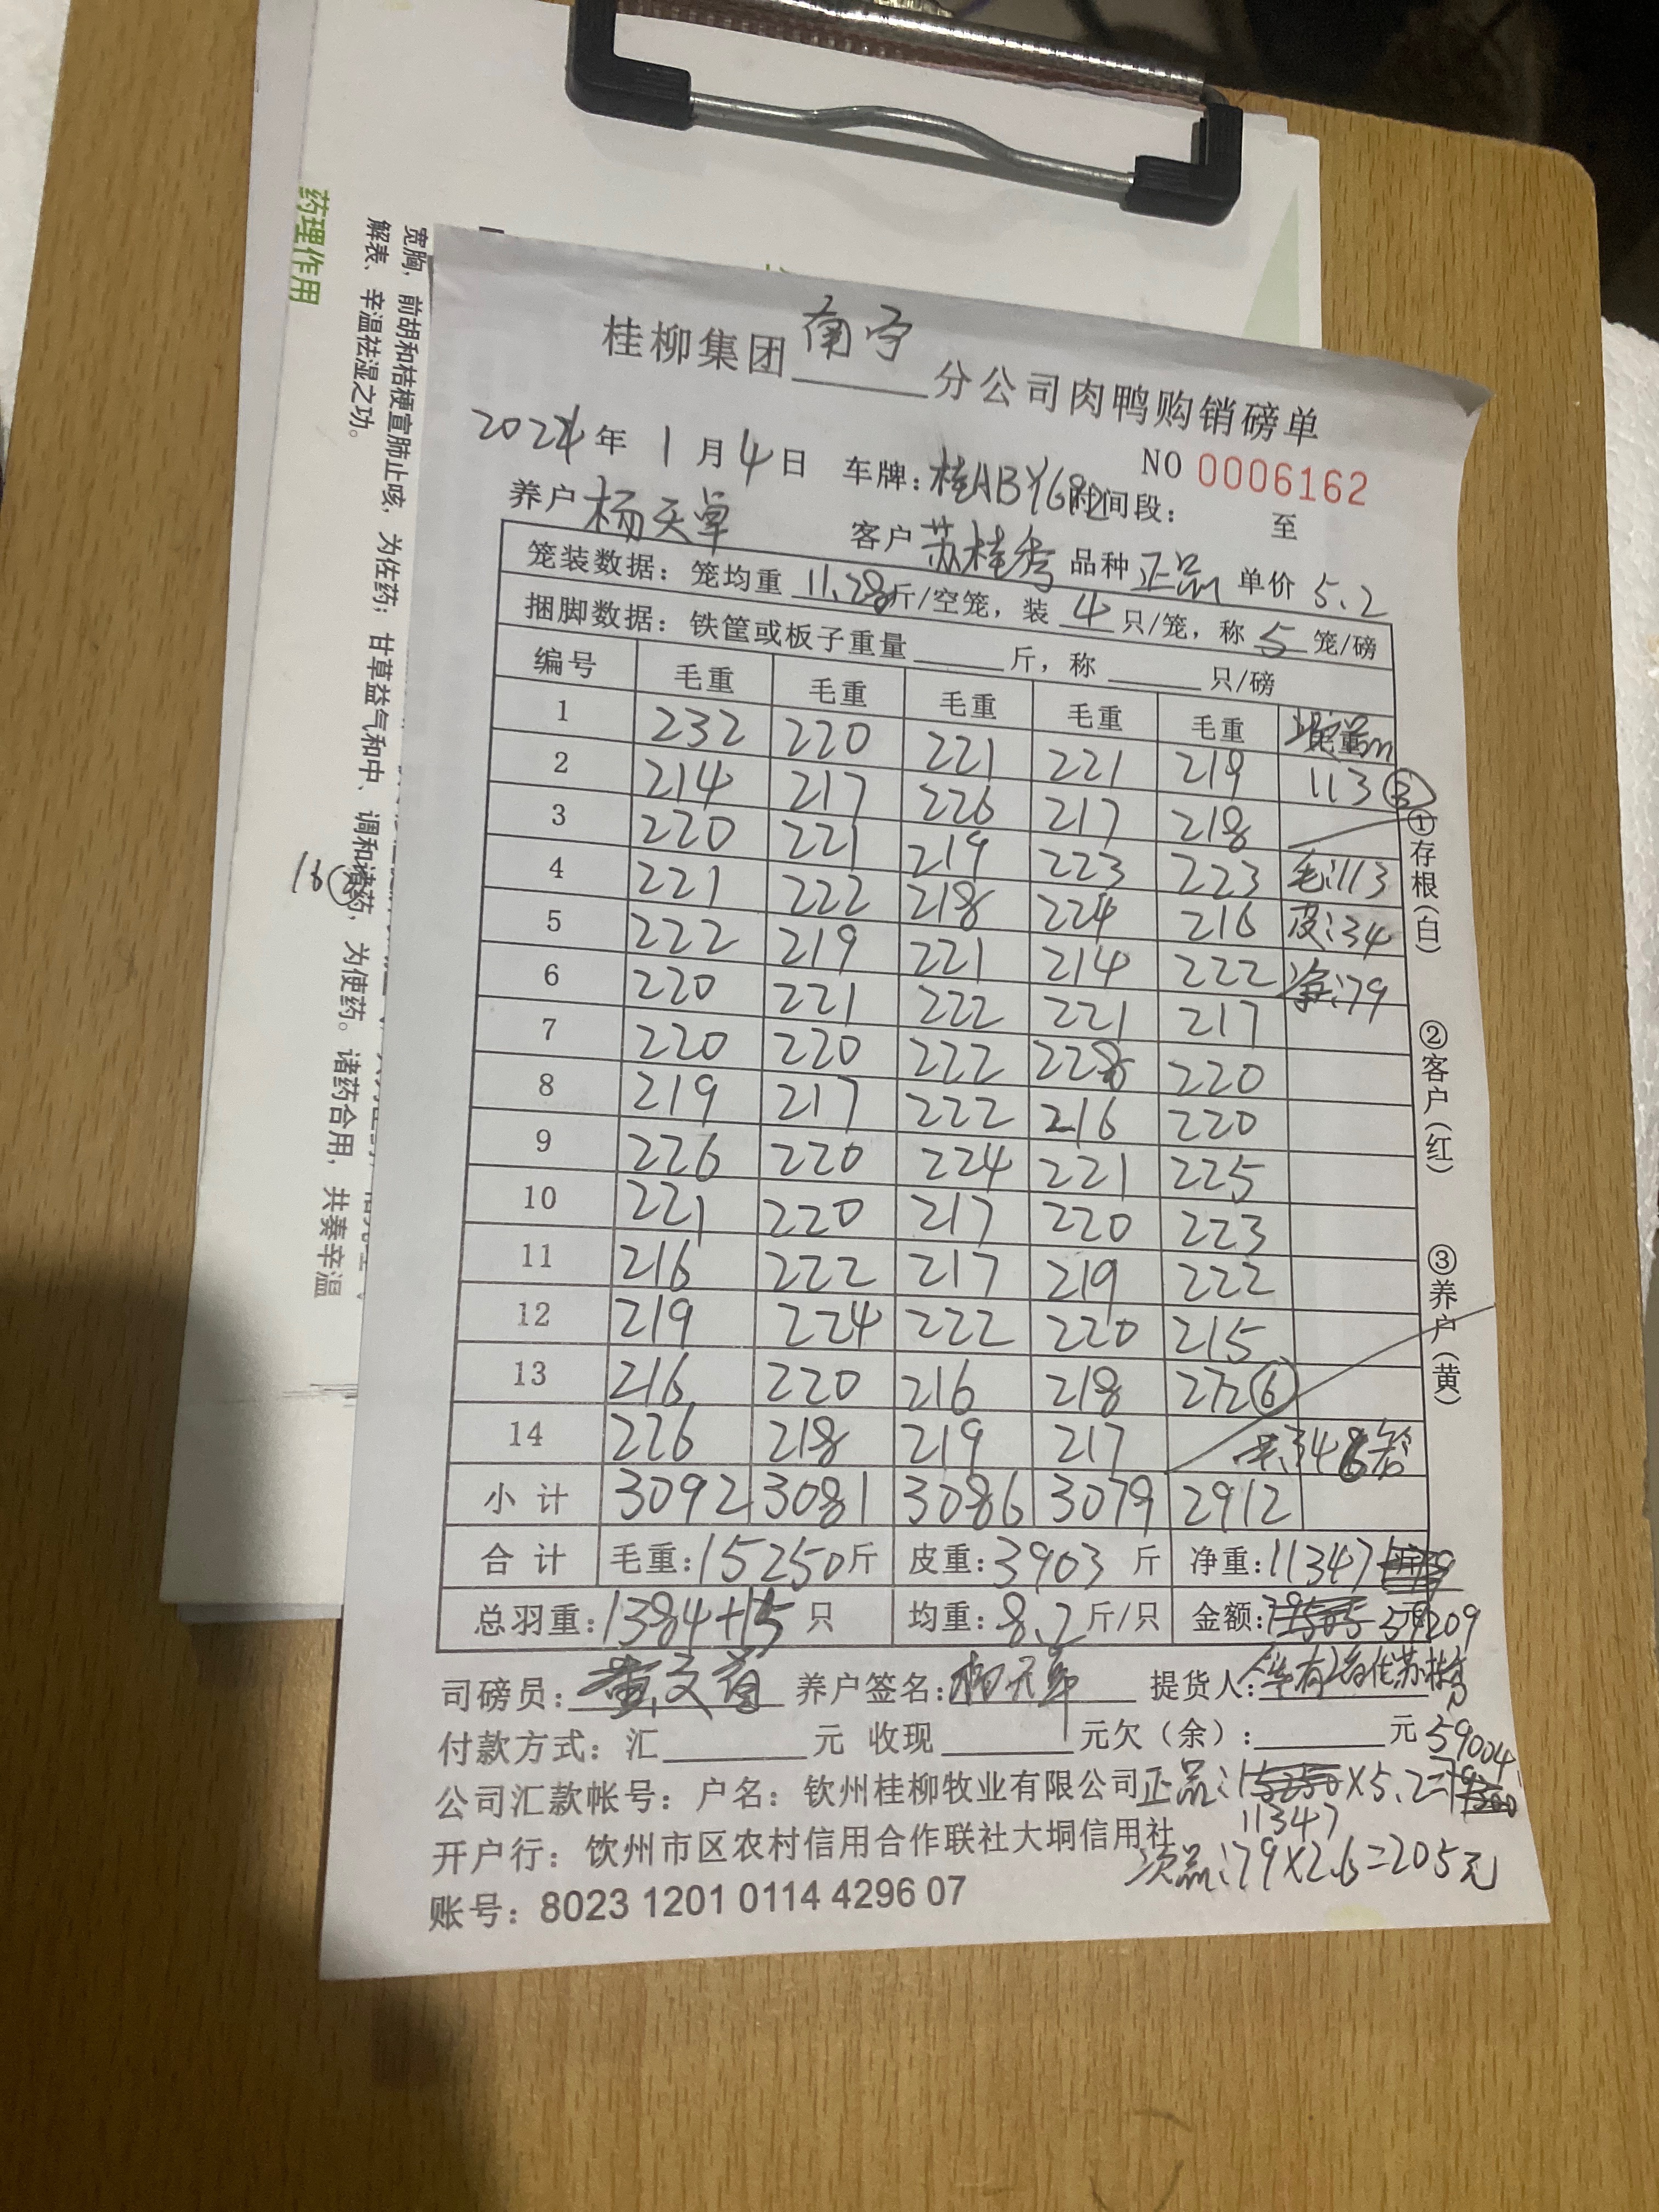 药理作用
宽胸，前胡和桔梗宣肺止咳，为佐药；甘草益气和中、调和诸药，为使药。诸药合用，共奏辛温
解表、辛温祛湿之功。
桂柳集团南宁分公司肉鸭购销磅单
NO 0006162
2024年 1月4日 车牌：桂ABY6 时间段： 至
养户 杨天卓 客户 苏桂秀 品种 正品 单价 5.2
笼装数据：笼均重 11.28 斤/空笼，装 4 只/笼，称 5 笼/磅
捆脚数据：铁筐或板子重量 斤，称 只/磅
编号 毛重 毛重 毛重 毛重 毛重
1 232 220 221 221 219 113 ③
2 214 217 226 217 218
3 220 221 219 223 223 毛:113
4 221 222 218 224 216 皮:34
5 222 219 221 214 222 净:79
6 220 221 222 221 217
7 220 220 222 228 220
8 219 217 222 216 220
9 226 220 224 221 225
10 221 220 217 220 223
11 216 222 217 219 222
12 219 224 222 220 215
13 216 220 216 218 272 ⑥
14 226 218 219 217 共:346笼
小计 3092 3081 3086 3079 2912
合计 毛重:15250斤 皮重:3903 斤 净重:11347
总羽重:1384+15 只 均重:8.2斤/只 金额: 元 59209
司磅员: 黄文 养户签名: 杨天卓 提货人: 代苏桂秀
付款方式：汇 元 收现 元欠（余）: 元 59004
公司汇款帐号：户名：钦州桂柳牧业有限公司 正品:15250×5.2=
11347
开户行：钦州市区农村信用合作联社大垌信用社
次品:79×2.6=205元
账号：8023 1201 0114 4296 07
①存根(白) ②客户(红) ③养户(黄)